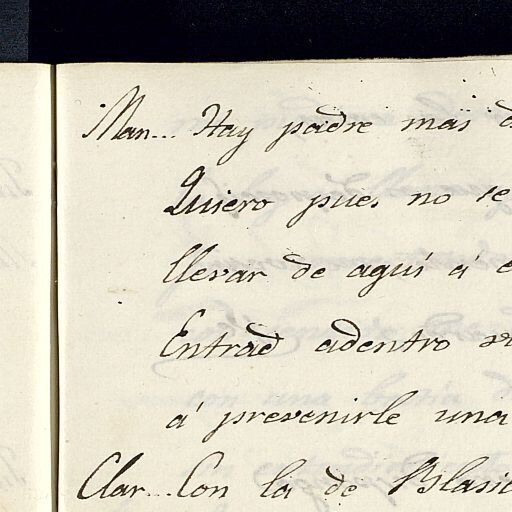 Man... Hay padre mas
Quiero pues no se
llevar de aquí á
Entrad adentro
á prevenirle una
Clar... Con la de Blasi